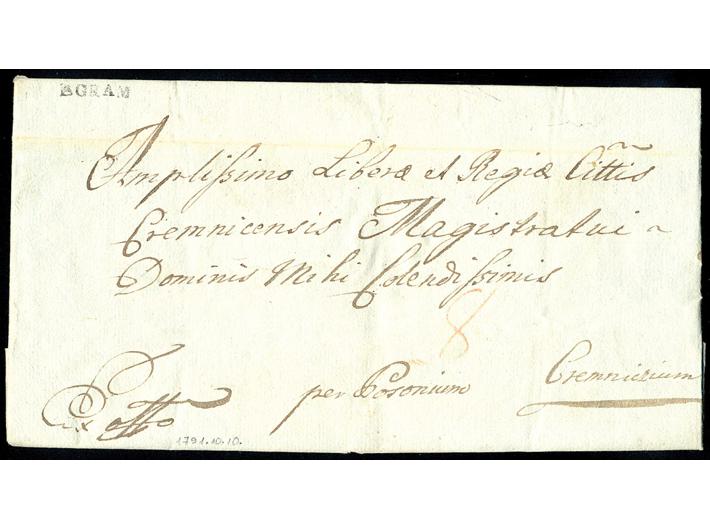 AGRAM
Amplissimo Liberæ et Regiæ Cittis
Cremnicensis Magistratui
Dominis Mihi Colendissimis
8
per Posonium
Cremnizium
Ex offo
1791.10.10.